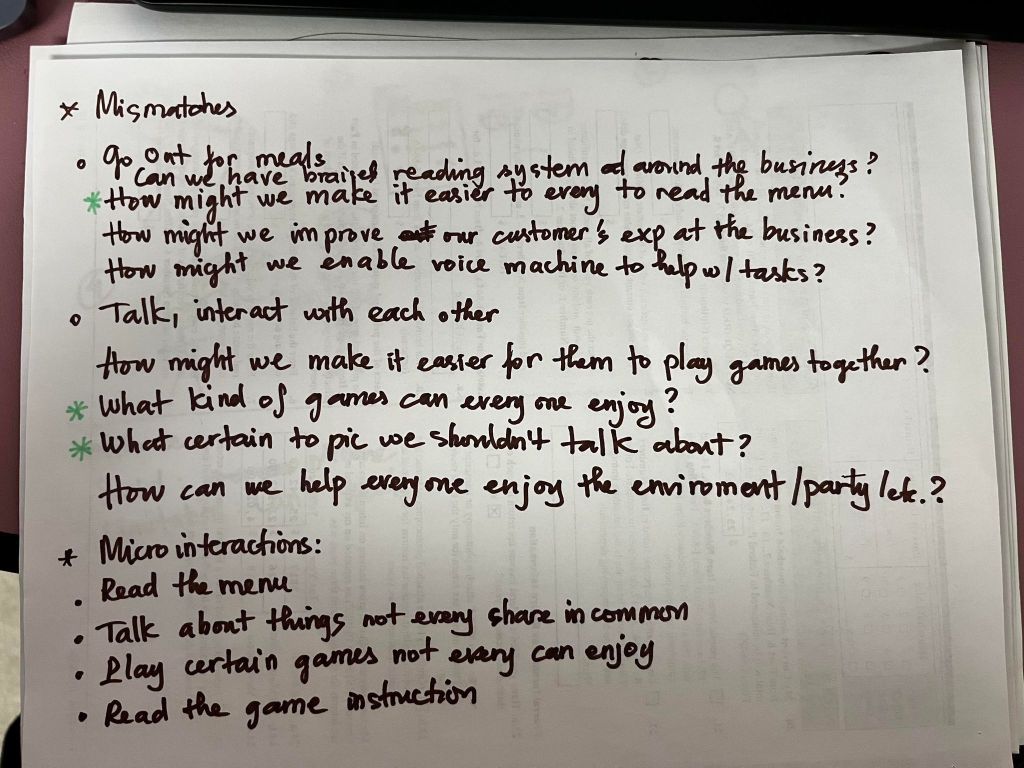 * Mismatches
o Go out for meals
Can we have brailef reading system ad around the business?
* How might we make it easier to every to read the menu?
How might we improve our customer's exp at the business?
How might we enable voice machine to help w/ tasks?
o Talk, interact with each other
How might we make it easier for them to play games together?
* What kind of games can every one enjoy?
* What certain topic we shouldn't talk about?
How can we help everyone enjoy the enviroment/party/etc.?
* Micro interactions:
• Read the menu
• Talk about things not every share in common
• Play certain games not every can enjoy
• Read the game instruction